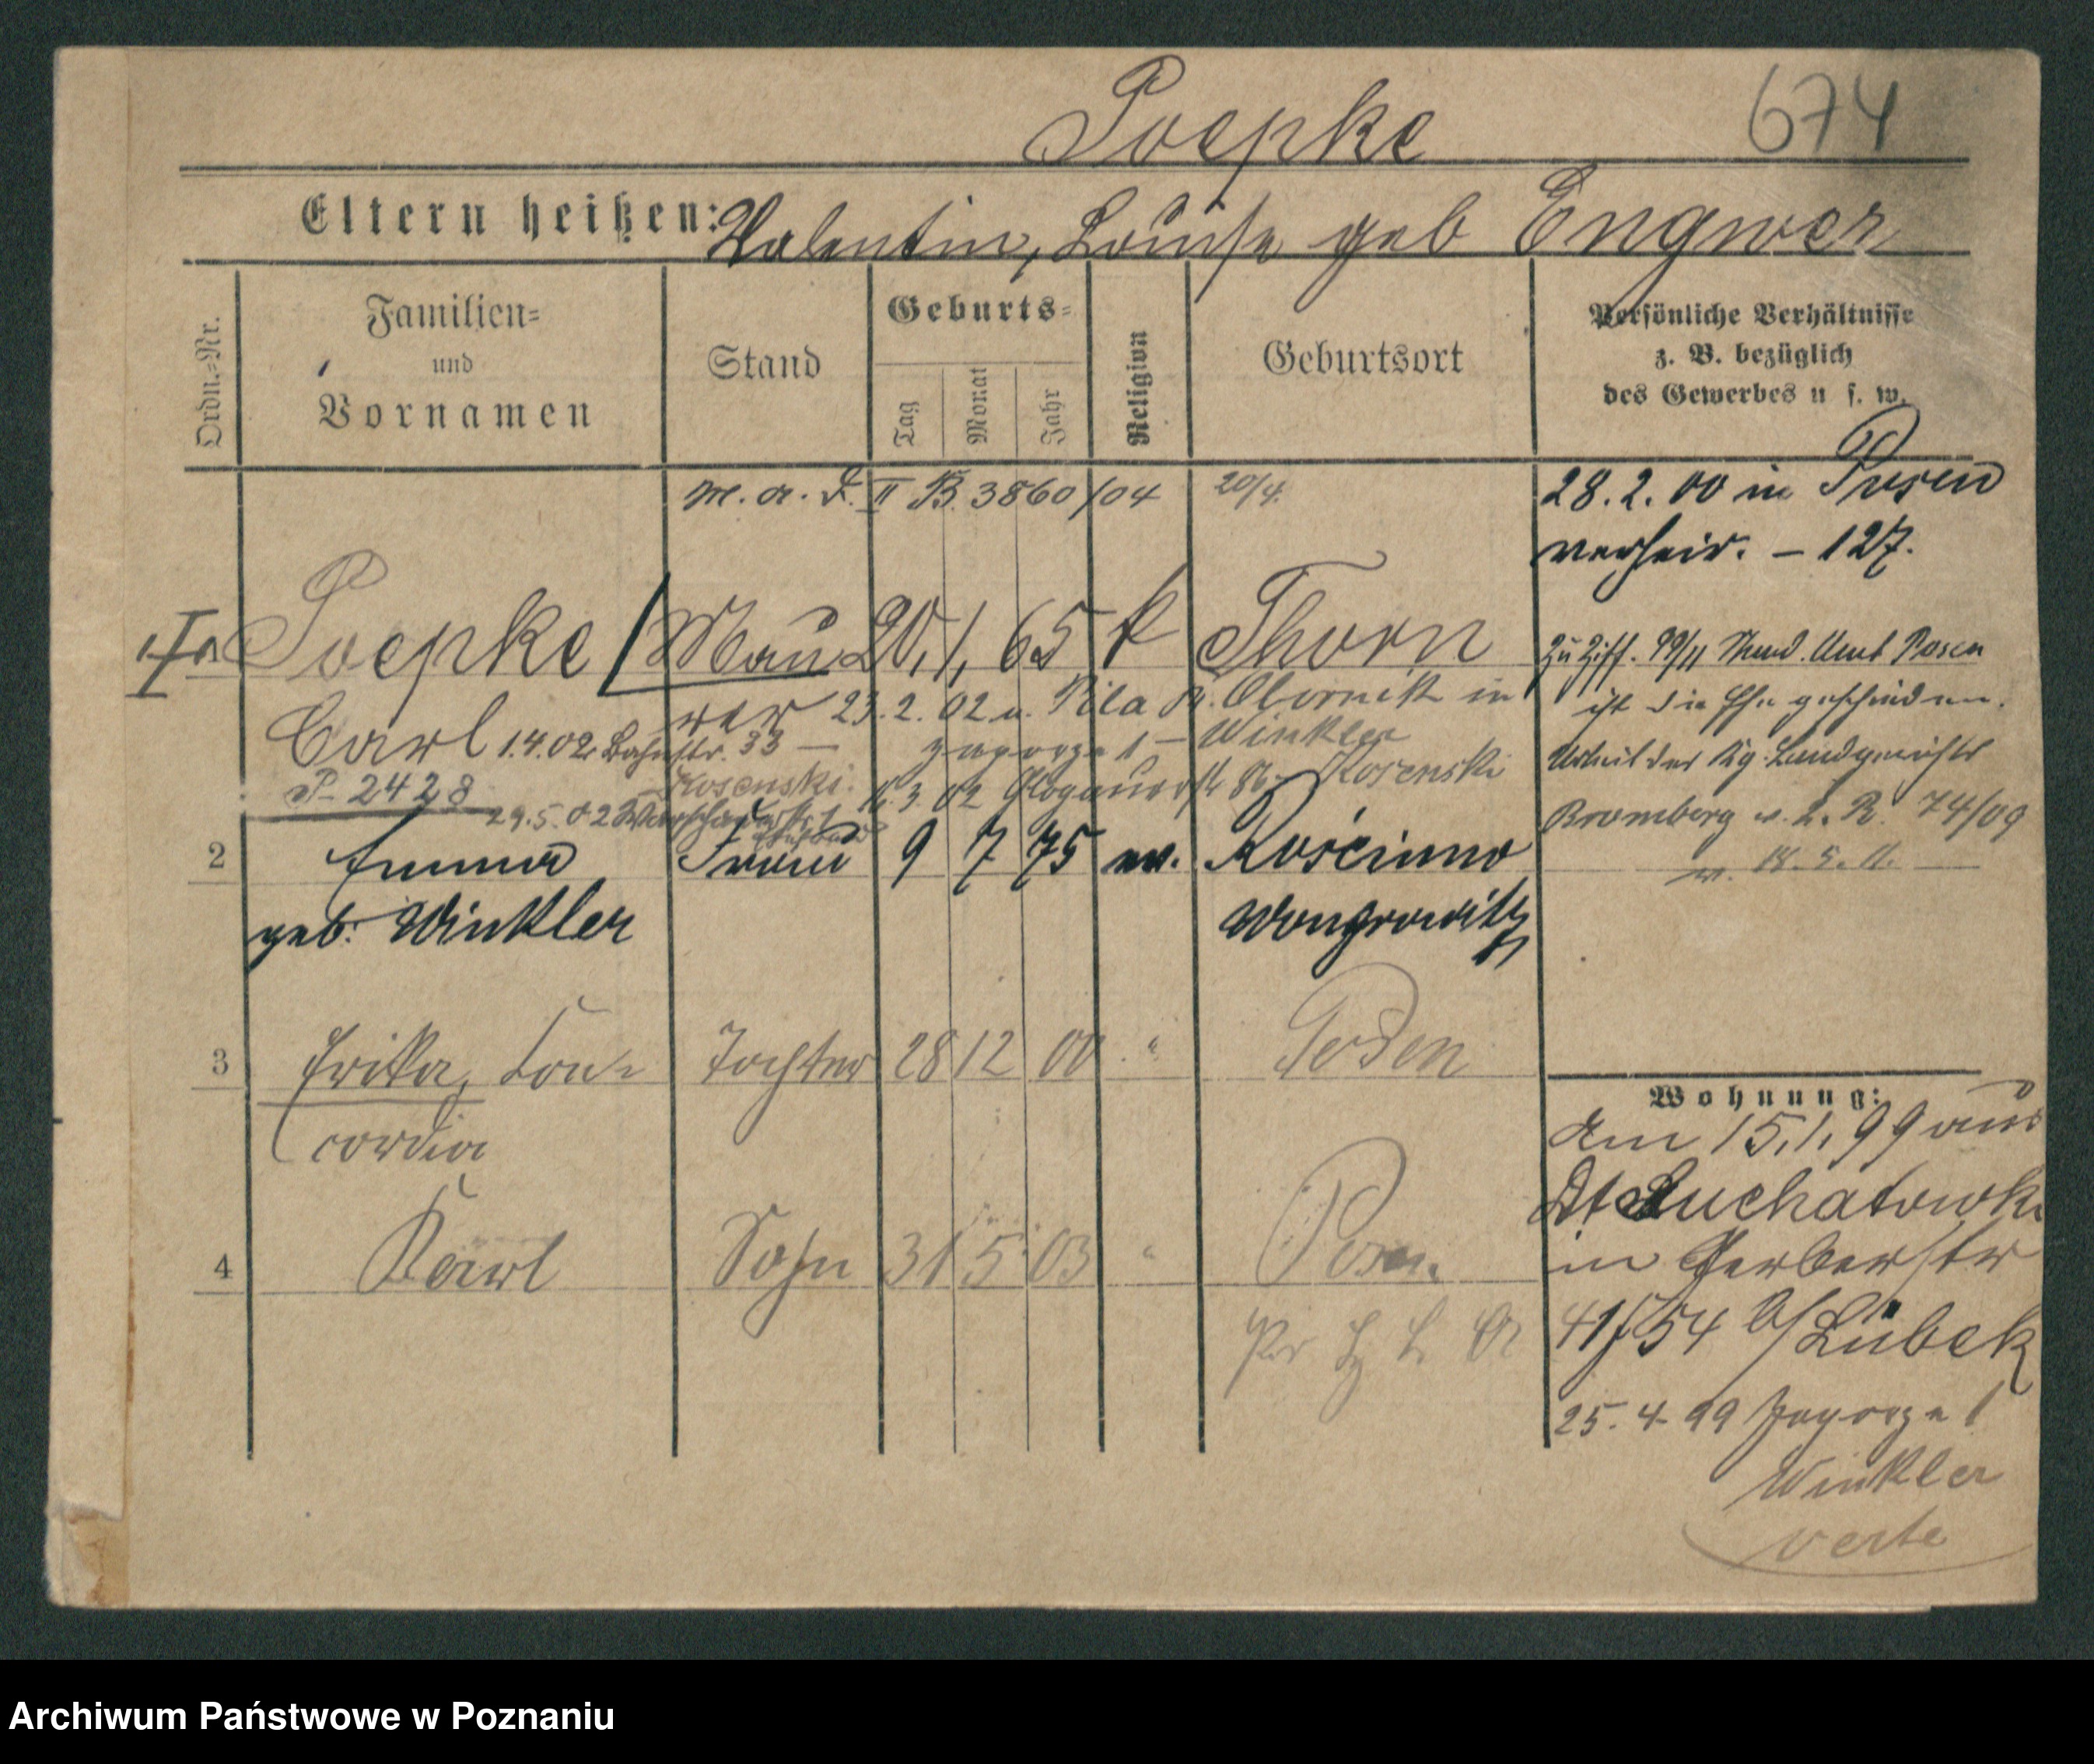 Poepke 674
Eltern heißen: Valentin, Louise geb Engwer
Ordn.-Nr.
Familien-
und
Vornamen
Stand
Geburts-
Tag
Monat
Jahr
Religion
Geburtsort
Persönliche Verhältnisse
z. B. bezüglich
des Gewerbes u s. w.
M. a. d. II B. 3860/04 20/4.
28.2.00 in Posen
verheir. – 127.
Poepke / Mau 20. 1. 65 k Thorn
Carl
rer 23.2.02 n. Pila Kr. Obornik in
1.4.02 Bahnstr. 33 — Zagorze 1 – Winkler
P- 2428
Kosenski. 3.02 Glogauerstr 86 Kosenski
29.5.02
Zu Ziff. 99/11 Stand. Amt Posen
ist die Ehe geschieden.
Urteil des Kg. Landgerichts
Bromberg 2. R. 74/09
v. 18.5.11.
2 Emma Frau 9 7 75 ev. Rościnno
geb. Winkler Wongrowitz
3 Erika, Con- Tochter 28 12 00 " Posen
cordia
4 Karl Sohn 31 5 03 " Posen.
Wohnung:
Am 15.1.99 aus
Suchatowko
in Gerberstr
41/54 b/Lübek
25.4.99 Zagorze 1
Winkler
verte
Archiwum Państwowe w Poznaniu